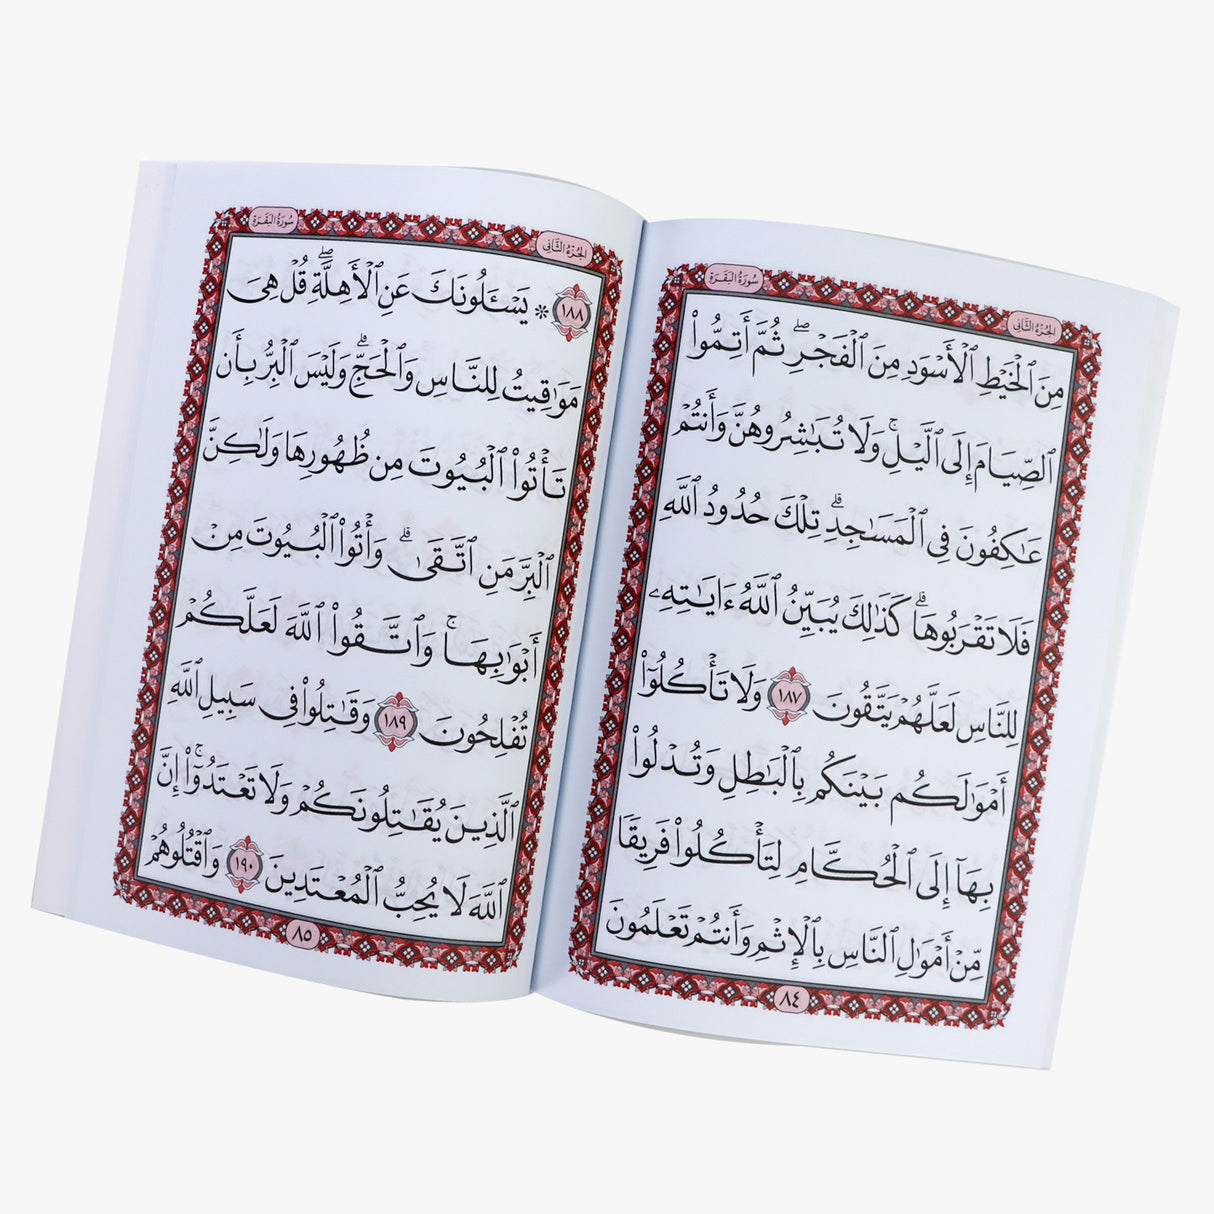 سُورَةُ البَقَرَة
الجُزءُ الثَّانِي
مِنَ ٱلۡخَيۡطِ ٱلۡأَسۡوَدِ مِنَ ٱلۡفَجۡرِۖ ثُمَّ أَتِمُّواْ
ٱلصِّيَامَ إِلَى ٱلَّيۡلِۚ وَلَا تُبَٰشِرُوهُنَّ وَأَنتُمۡ
عَٰكِفُونَ فِي ٱلۡمَسَٰجِدِۗ تِلۡكَ حُدُودُ ٱللَّهِ
فَلَا تَقۡرَبُوهَاۗ كَذَٰلِكَ يُبَيِّنُ ٱللَّهُ ءَايَٰتِهِۦ
لِلنَّاسِ لَعَلَّهُمۡ يَتَّقُونَ ١٨٧ وَلَا تَأۡكُلُوٓاْ
أَمۡوَٰلَكُم بَيۡنَكُم بِٱلۡبَٰطِلِ وَتُدۡلُواْ
بِهَآ إِلَى ٱلۡحُكَّامِ لِتَأۡكُلُواْ فَرِيقٗا
مِّنۡ أَمۡوَٰلِ ٱلنَّاسِ بِٱلۡإِثۡمِ وَأَنتُمۡ تَعۡلَمُونَ
٨٤
سُورَةُ البَقَرَة
الجُزءُ الثَّانِي
١٨٨ * يَسۡـَٔلُونَكَ عَنِ ٱلۡأَهِلَّةِۖ قُلۡ هِيَ
مَوَٰقِيتُ لِلنَّاسِ وَٱلۡحَجِّۗ وَلَيۡسَ ٱلۡبِرُّ بِأَن
تَأۡتُواْ ٱلۡبُيُوتَ مِن ظُهُورِهَا وَلَٰكِنَّ
ٱلۡبِرَّ مَنِ ٱتَّقَىٰۗ وَأۡتُواْ ٱلۡبُيُوتَ مِنۡ
أَبۡوَٰبِهَاۚ وَٱتَّقُواْ ٱللَّهَ لَعَلَّكُمۡ
تُفۡلِحُونَ ١٨٩ وَقَٰتِلُواْ فِي سَبِيلِ ٱللَّهِ
ٱلَّذِينَ يُقَٰتِلُونَكُمۡ وَلَا تَعۡتَدُوٓاْۚ إِنَّ
ٱللَّهَ لَا يُحِبُّ ٱلۡمُعۡتَدِينَ ١٩٠ وَٱقۡتُلُوهُمۡ
٨٥